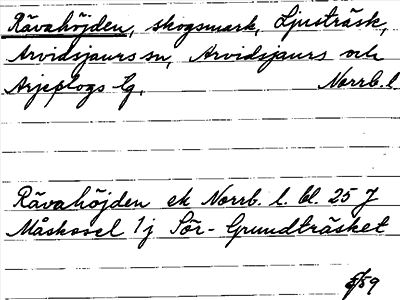 Rävahöjden, skogsmark, Ljusträsk,
Arvidsjaurs sn, Arvidsjaurs och
Arjeplogs lg.
Norrb. l.
Rävahöjden ek Norrb. l. bl. 25 J
Måskosel 1j Sör-Grundträsket
/59